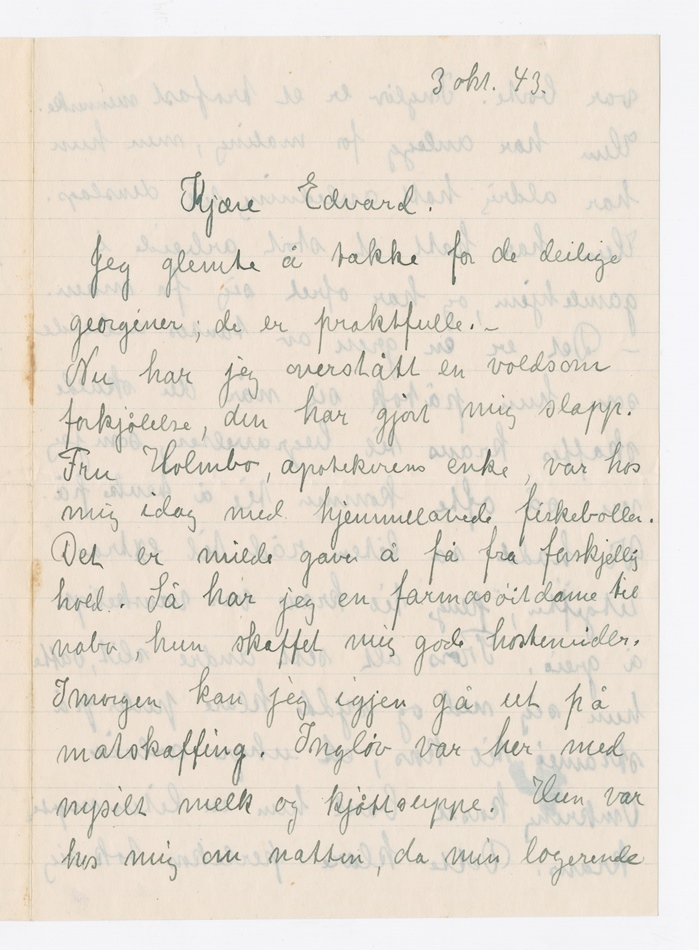 3 okt. 43.
Kjære Edvard.
Jeg glemte å takke for de deilige
georginer; de er praktfulle. –
Nu har jeg overstått en voldsom
forkjølelse, den har gjort mig slapp.
Fru Holmbo, apotekerens enke, var hos
mig idag med hjemmelavede fiskeboller.
Det er milde gaver å få fra forskjellig
hold. Så har jeg en farmasøitdame til
nabo, hun skaffet mig gode hostemidler.
Imorgen kan jeg igjen gå ut på
matskaffing. Ingløv var her med
nysilt melk og kjøttsuppe. Hun var
hos mig om natten, da min logerende